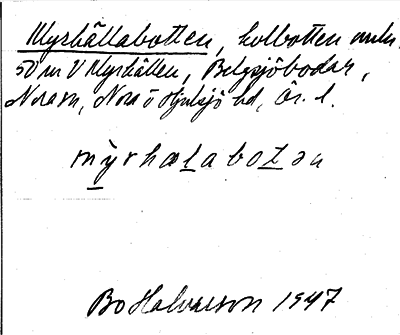 Myrhällabotten, kolbotten
50 m V Myrhällen, Bergsjöbodar,
Nora sn, Nora o Hjulsjö hd, Ör. l.
mỳrhælabotən
Bo Halvarson 1947